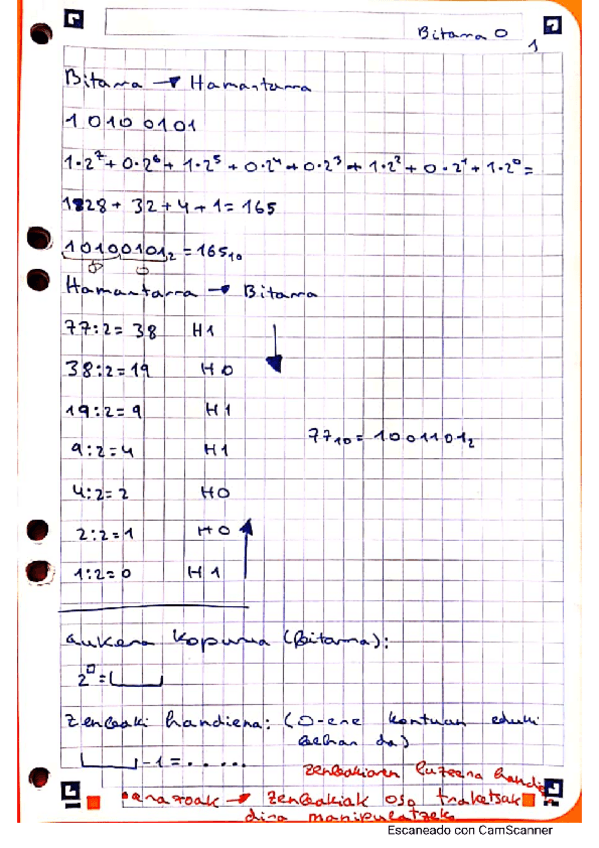 Bitarra 0
1
Bitarra → Hamartarra
10100101
1·2⁷ + 0·2⁶ + 1·2⁵ + 0·2⁴ + 0·2³ + 1·2² + 0·2¹ + 1·2⁰ =
128 + 32 + 4 + 1 = 165
10100101₂ = 165₁₀
Hamartarra → Bitarra
77:2 = 38 H1
38:2 = 19 H0
19:2 = 9 H1
77₁₀ = 1001101₂
9:2 = 4 H1
4:2 = 2 H0
2:2 = 1 H0
1:2 = 0 H1
aukera kopurua (Bitarra):
2□ =
Zenbaki handiena: (0-ere kontuan eduki
behar da)
-1 = .....
zenbakiaren luzeera handia
arazoak → zenbakiak oso traketsak
dira manipulatzek
Escaneado con CamScanner